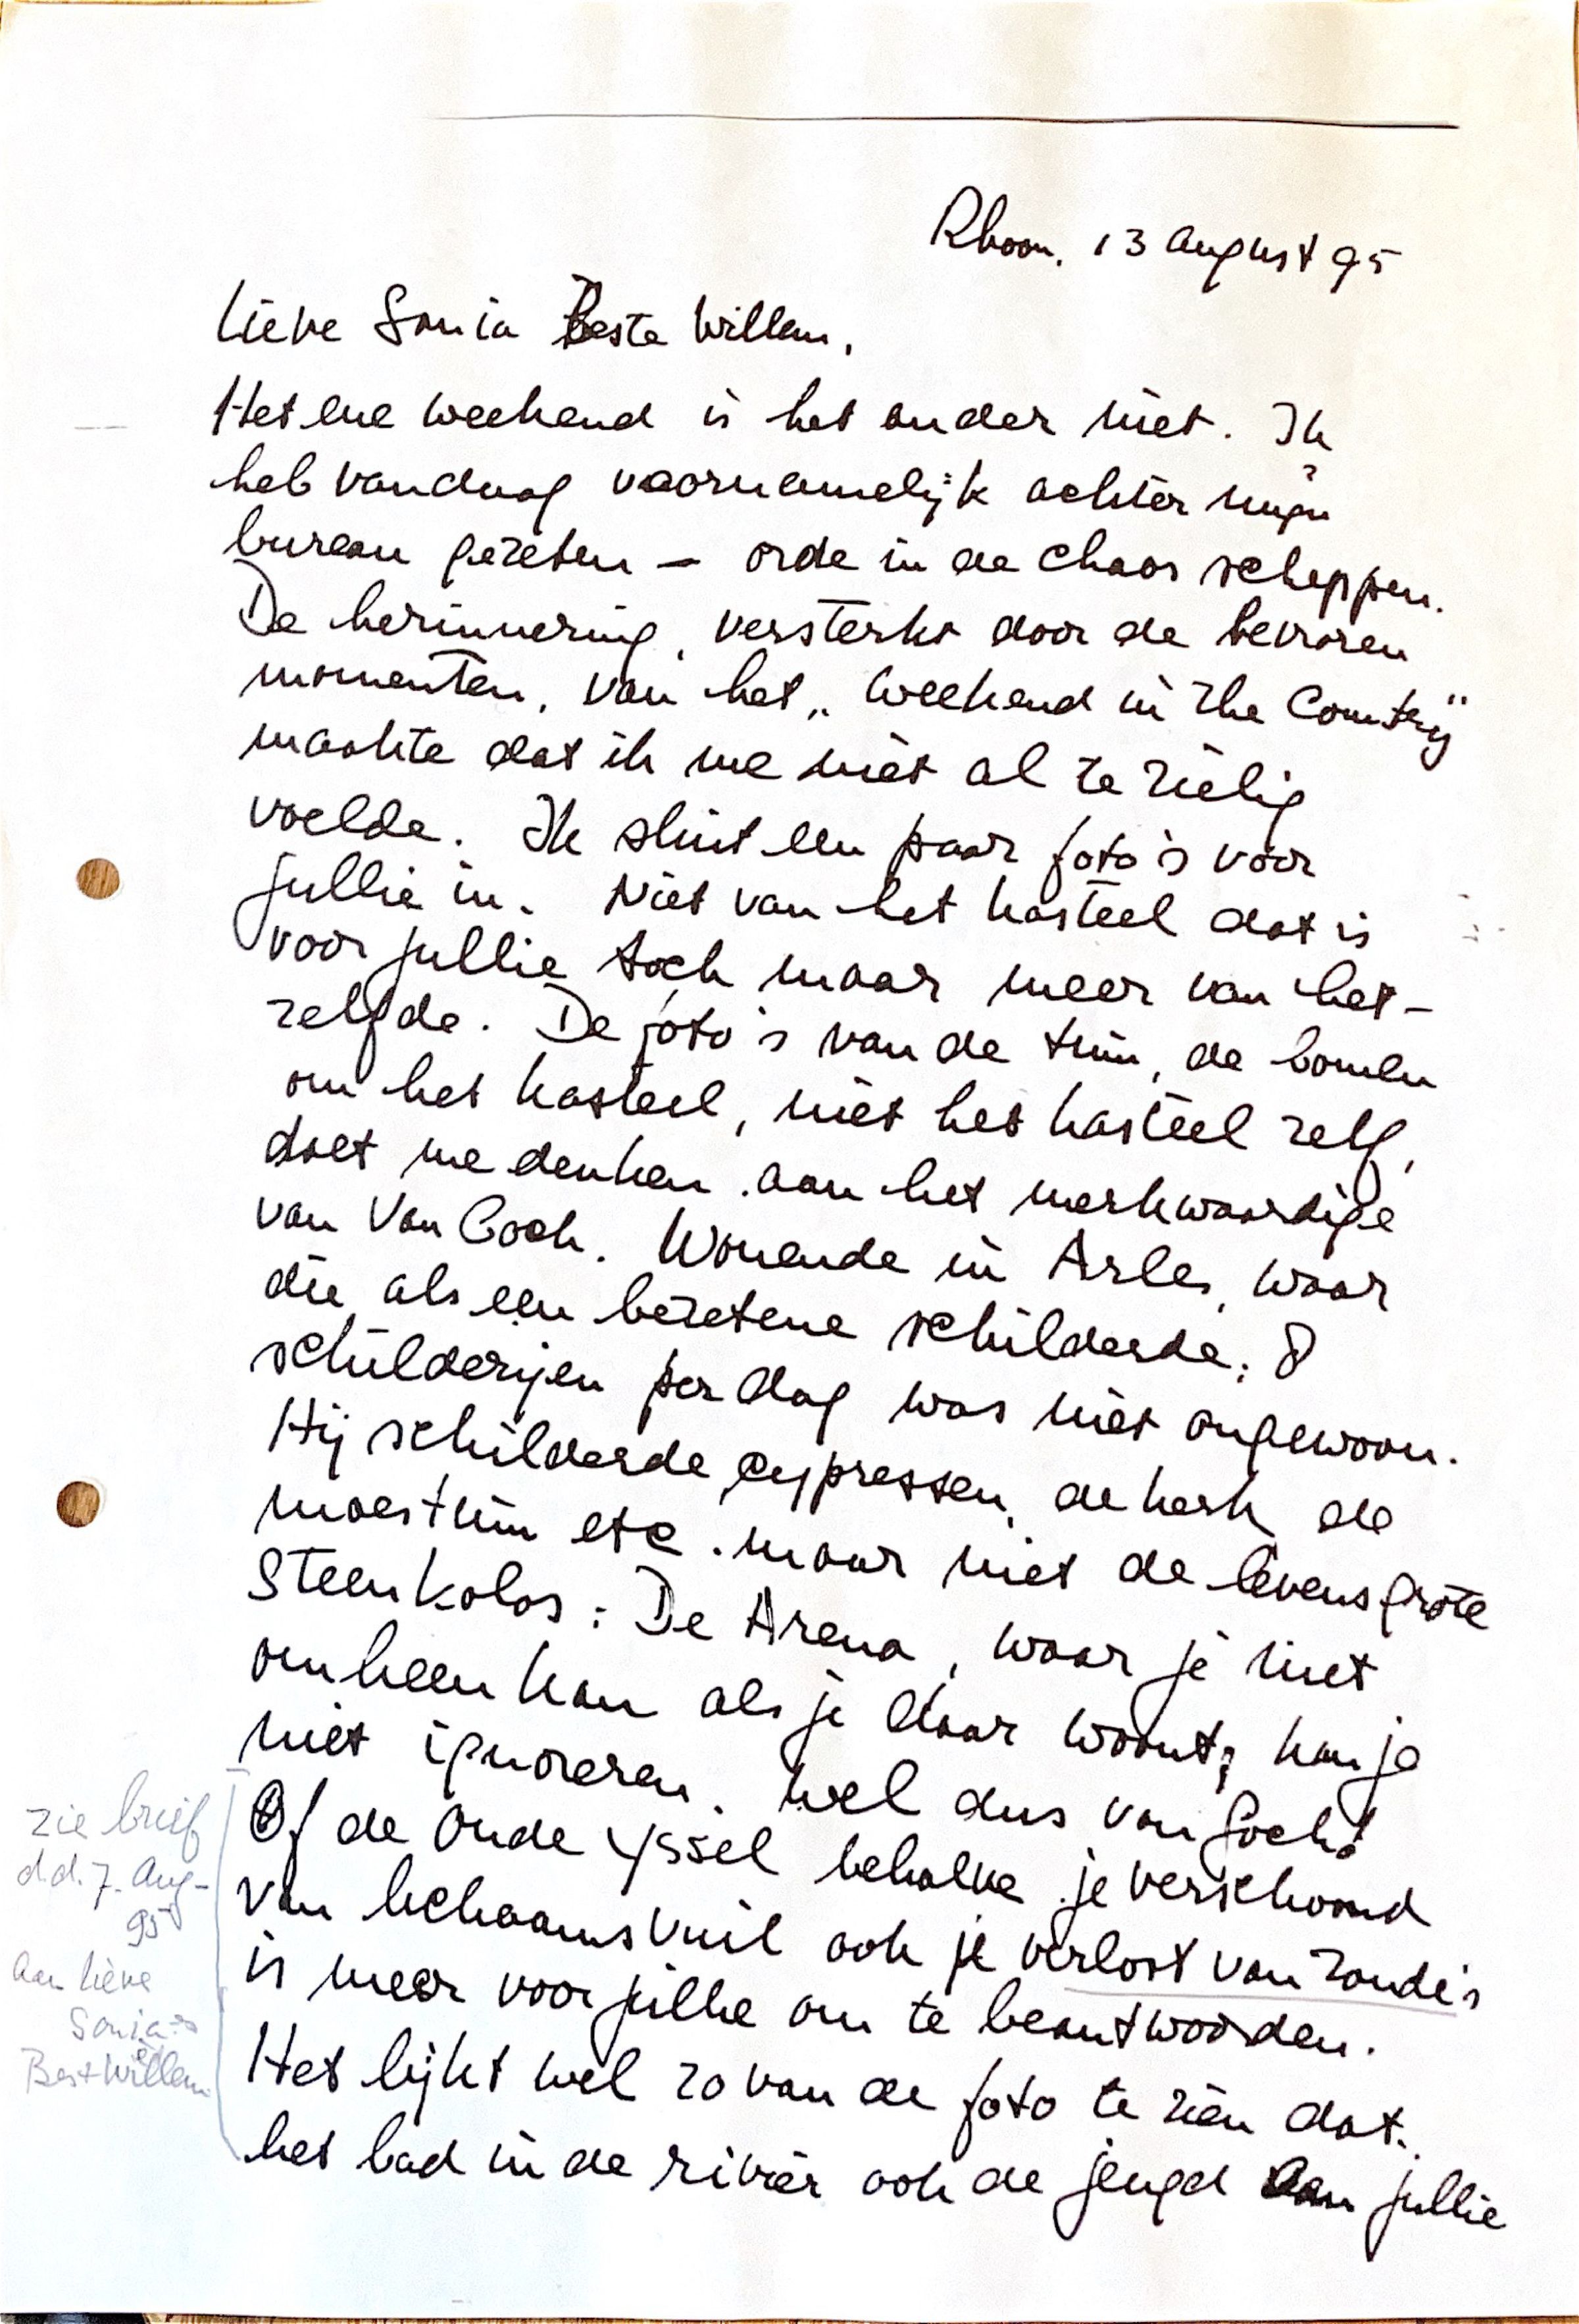 Rhoon. 13 august 95
Lieve Sonia Beste Willem,
Het ene weekend is het ander niet. Ik
heb vandaag voornamelijk achter mijn
bureau gezeten – orde in de chaos scheppen.
De herinnering, versterkt door de bevroren
momenten, van het „weekend in the Country"
maakte dat ik me niet al te zielig
voelde. Ik sluit een paar foto's voor
jullie in. Niet van het kasteel dat is
voor jullie toch maar meer van het-
zelfde. De foto's van de tuin, de bomen
om het kasteel, niet het kasteel zelf,
doet me denken aan het merkwaardige
van Van Goch. Wonende in Arles, waar
die als een bezetene schilderde; 8
schilderijen per dag was niet ongewoon.
Hij schilderde cypressen, de kerk, de
moestuin etc. maar niet de levensgrote
Steenkolos: De Arena, waar je niet
omheen kan als je daar woont, kan je
niet ignoreren. Wel dus van Goch!
Of de Oude Yssel behalve je verschoond
van lichaamsvuil ook je verlost van zonde's
is meer voor jullie om te beantwoorden.
Het lijkt wel zo van de foto te zien dat
het bad in de rivier ook de jeugd aan jullie
zie brief
d.d. 7. Aug-
95
Aan lieve
Sonia en
Best Willem